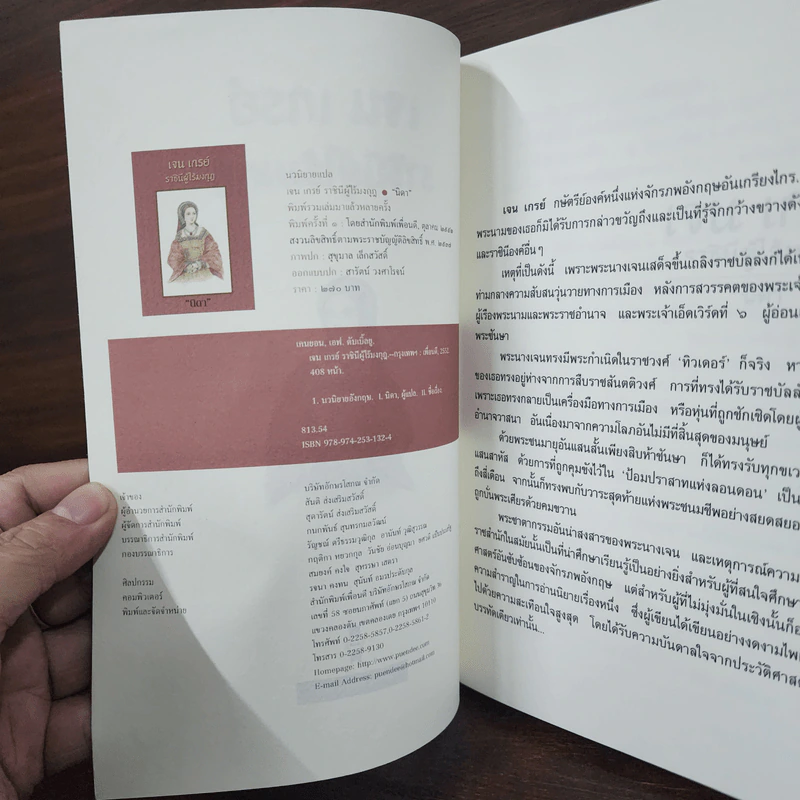 เจน เกรย์
ราชินีผู้ไร้มงกุฎ
"นิดา"
นวนิยายแปล
เจน เกรย์ ราชินีผู้ไร้มงกุฎ ● "นิดา"
พิมพ์รวมเล่มมาแล้วหลายครั้ง
พิมพ์ครั้งที่ ๑ : โดยสำนักพิมพ์เพื่อนดี, ตุลาคม ๒๕๕๒
สงวนลิขสิทธิ์ตามพระราชบัญญัติลิขสิทธิ์ พ.ศ. ๒๕๓๗
ภาพปก : สุขุมาล เล็กสวัสดิ์
ออกแบบปก : สารัตน์ วงศาโรจน์
ราคา : ๒๗๐ บาท
เคนยอน, เอฟ. ดับเบิ้ลยู.
เจน เกรย์ ราชินีผู้ไร้มงกุฎ.--กรุงเทพฯ : เพื่อนดี, 2552.
408 หน้า.
1. นวนิยายอังกฤษ. I. นิดา, ผู้แปล. II. ชื่อเรื่อง.
813.54
ISBN 978-974-253-132-4
เจ้าของ
ผู้อำนวยการสำนักพิมพ์
ผู้จัดการสำนักพิมพ์
บรรณาธิการสำนักพิมพ์
กองบรรณาธิการ
ศิลปกรรม
คอมพิวเตอร์
พิมพ์และจัดจำหน่าย
บริษัทอักษรโสภณ จำกัด
สันติ ส่งเสริมสวัสดิ์
สุดารัตน์ ส่งเสริมสวัสดิ์
กนกพันธุ์ สุนทรกมลวัฒน์
รัญชณ์ ตรีธรรมวุฒิกุล อานันท์ วุฒิสุวรรณ
กฤติกา หยวกกุล วันชัย อ่อนบุญมา
สมยงค์ คงใจ สุทรรษา เสตรา
รจนา คงทน สุนันท์ อมรประดับกุล
สำนักพิมพ์เพื่อนดี บริษัทอักษรโสภณ จำกัด
เลขที่ 58 ซอยนภาศัพท์ (แยก 5) ถนนสุขุมวิท 36
แขวงคลองตัน เขตคลองเตย กรุงเทพฯ 10110
โทรศัพท์ 0-2258-5857,0-2258-5861-2
โทรสาร 0-2258-9130
Homepage: http://www.puendee.com
E-mail Address: puendee@hotmail.com
เจน เกรย์ กษัตรีย์องค์หนึ่งแห่งจักรภพอังกฤษอันเกรียงไกร
พระนามของเธอก็มิได้รับการกล่าวขวัญถึงและเป็นที่รู้จักกว้างขวางดัง
และราชินีองค์อื่น ๆ
เหตุที่เป็นดังนี้ เพราะพระนางเจนเสด็จขึ้นเถลิงราชบัลลังก์ได้เ
ท่ามกลางความสับสนวุ่นวายทางการเมือง หลังการสวรรคตของพระเจ้า
ผู้เรืองพระนามและพระราชอำนาจ และพระเจ้าเอ็ดเวิร์ดที่ ๖ ผู้อ่อน
พระชันษา
พระนางเจนทรงมีพระกำเนิดในราชวงศ์ 'ทิวเดอร์' ก็จริง หา
ของเธอทรงอยู่ห่างจากการสืบราชสันตติวงศ์ การที่ทรงได้รับราชบัลลั
เพราะเธอทรงกลายเป็นเครื่องมือทางการเมือง หรือหุ่นที่ถูกชักเชิดโดยผู้
อำนาจวาสนา อันเนื่องมาจากความโลภอันไม่มีที่สิ้นสุดของมนุษย์
ด้วยพระชนมายุอันแสนสั้นเพียงสิบห้าชันษา ก็ได้ทรงรับทุกขเว
แสนสาหัส ด้วยการที่ถูกคุมขังไว้ใน 'ป้อมปราสาทแห่งลอนดอน' เป็น
ถึงสี่เดือน จากนั้นก็ทรงพบกับวาระสุดท้ายแห่งพระชนมชีพอย่างสยดสยอ
ถูกบั่นพระเศียรด้วยคมขวาน
พระชะตากรรมอันน่าสงสารของพระนางเจน และเหตุการณ์ความ
ราชสำนักในสมัยนั้นเป็นที่น่าศึกษาเรียนรู้เป็นอย่างยิ่งสำหรับผู้ที่สนใจศึกษา
ศาสตร์อันซับซ้อนของจักรภพอังกฤษ แต่สำหรับผู้ที่ไม่มุ่งมั่นในเชิงนั้นก็อ
ความสำราญในการอ่านนิยายเรื่องหนึ่ง ซึ่งผู้เขียนได้เขียนอย่างงดงามไพเ
ไปด้วยความสะเทือนใจสูงสุด โดยได้รับความบันดาลใจจากประวัติศาสต
บรรทัดเดียวเท่านั้น...